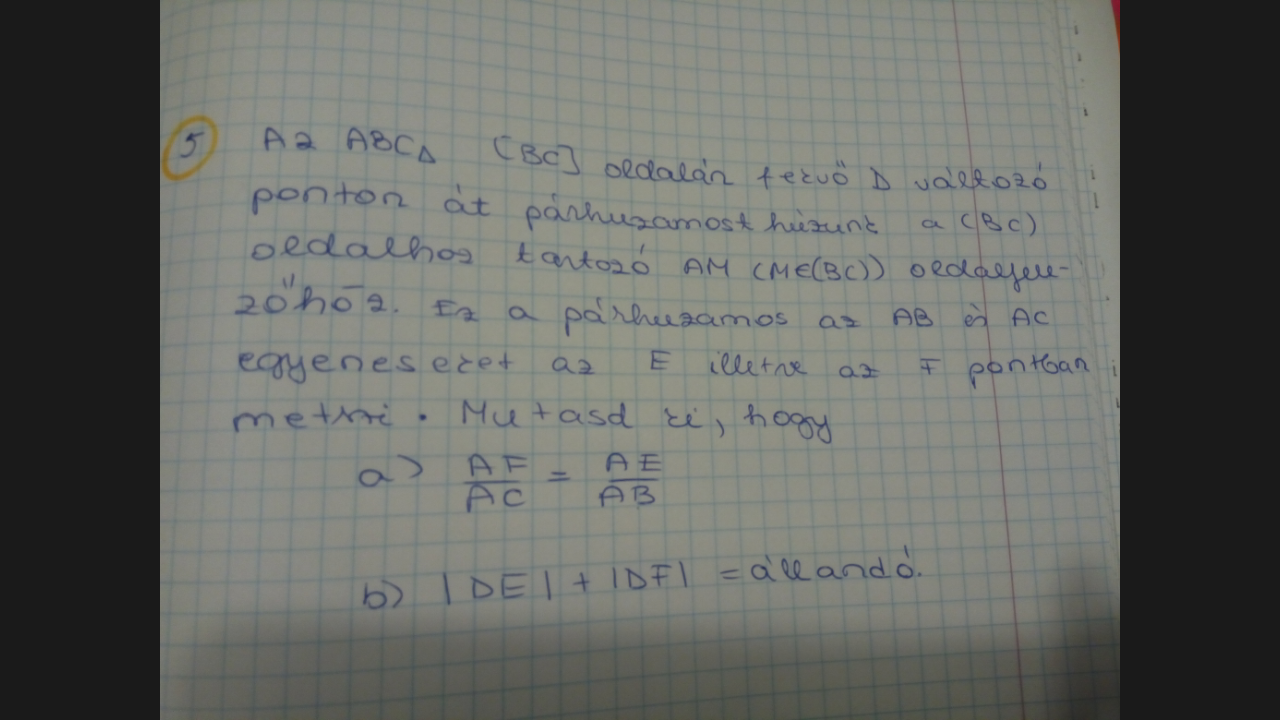 5 Az ABC△ [BC] oldalán fekvő D változó
ponton át párhuzamost húzunk a (BC)
oldalhoz tartozó AM (M∈(BC)) oldalfele-
zőhöz. Ez a párhuzamos az AB és AC
egyeneseket az E illetve az F pontban
metszi. Mutasd ki, hogy
a) AF/AC = AE/AB
b) |DE| + |DF| = állandó.